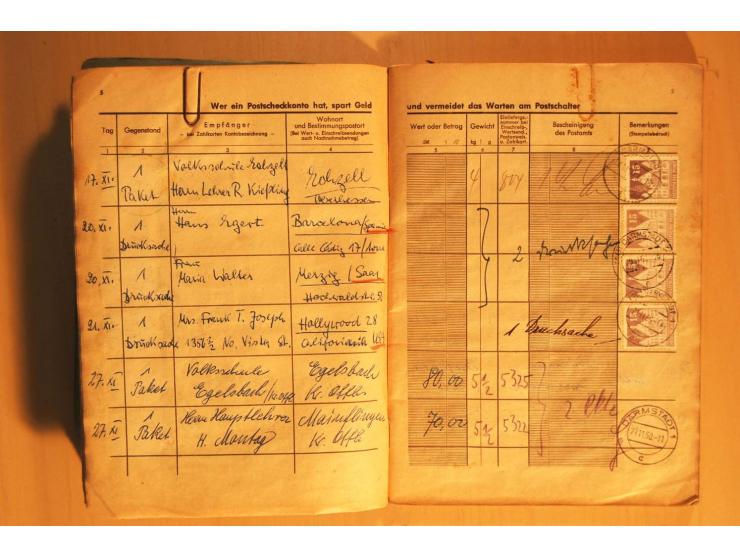 5
Wer ein Postscheckkonto hat, spart Geld
Tag
Gegenstand
Empfänger
– bei Zahlkarten Kontobezeichnung –
Wohnort
und Bestimmungspostort
(Bei Wert- u. Einschreibsendungen
auch Nachnahmebetrag)
1 2 3 4
17. XI. 1 Paket
Volksschule Echzell
Herrn Lehrer R. Kiepling
Echzell
Oberhessen
20. XI. 1 Drucksache
Herrn
Hans Egert
Barcelona/Spanien
Calle 17/
20. XI. 1 Drucksache
Frau
Maria Walter
Merzig / Saar
Hochwaldstr.
21. XI. 1 Drucksache
Mrs. Frank T. Joseph
1356 1/2 No. Vista St.
Hollywood 28
California USA
27. XI 1 Paket
Volksschule
Egelsbach
Egelsbach
Kr. Offb.
27. XI 1 Paket
Herrn Hauptlehrer
H. Montag
Mainflingen
Kr. Offb.
und vermeidet das Warten am Postschalter
5
Wert oder Betrag
Gewicht
kg g
Einlieferungs-
nummer bei
Einschreib-
Wertsend.,
Postanweis.
u. Zahlkart.
Bescheinigung
des Postamts
Bemerkungen
(Stempelabdruck)
5 6 7 8
4 804
15
2
1 Drucksache
80,00 5 1/2 5325
70,00 5 1/2 5322
2
DARMSTADT 1
27.11.50.-11
c